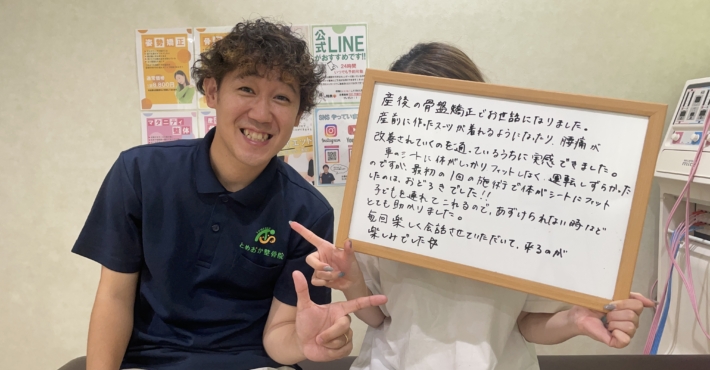 姿勢矯正
公式LINE
がおすすめです!!
24時間
マタニティ
整体
SNS やっています
Instagram
とめおか整骨院
産後の骨盤矯正でお世話になりました。
産前に作ったスーツが着れるようになったり、腰痛が
改善されていくのを通っているうちに実感できました。
車のシートに体がしっかりフィットしなく、運転しずらかった
のですが、最初の1回の施術で体がシートにフィット
したのは、おどろきでした!!
子どもを連れてこれるので、あずけられない時など
とても助かりました。
毎回楽しく会話させていただいて、来るのが
楽しみでした